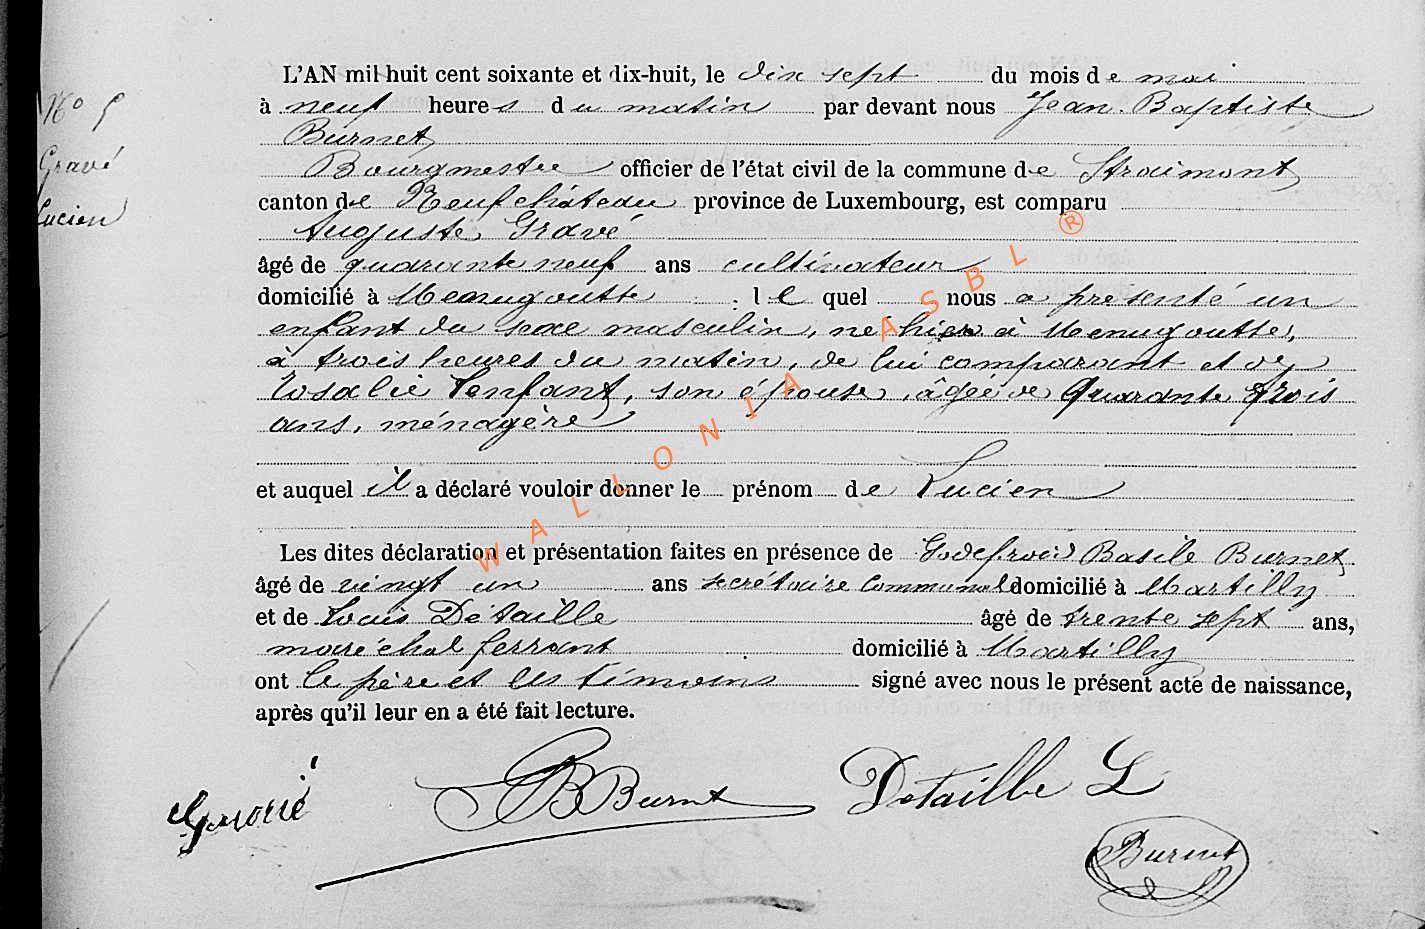 N° 5
Gravé
Lucien
L'AN mil huit cent soixante et dix-huit, le dix sept du mois de mai
à neuf heures du matin par devant nous Jean Baptiste
Burnet
Bourgmestre officier de l'état civil de la commune de Straimont
canton de Neufchâteau province de Luxembourg, est comparu
Auguste Gravé
âgé de quarante neuf ans cultivateur
domicilié à Menugoutte : lequel nous a présenté un
enfant du sexe masculin, né hier à Menugoutte,
à trois heures du matin, de lui comparant et de
Rosalie Lenfant, son épouse, âgée de quarante trois
ans, ménagère
et auquel il a déclaré vouloir donner le prénom de Lucien
Les dites déclaration et présentation faites en présence de Godefroid Basile Burnet
âgé de vingt un ans secrétaire communal domicilié à Martilly
et de Louis Détaille âgé de trente sept ans,
maréchal ferrant domicilié à Martilly
ont le père et les témoins signé avec nous le présent acte de naissance,
après qu'il leur en a été fait lecture.
Gravé
Burnet
Detaille L
Burnet
WALLONIA ASBL ®